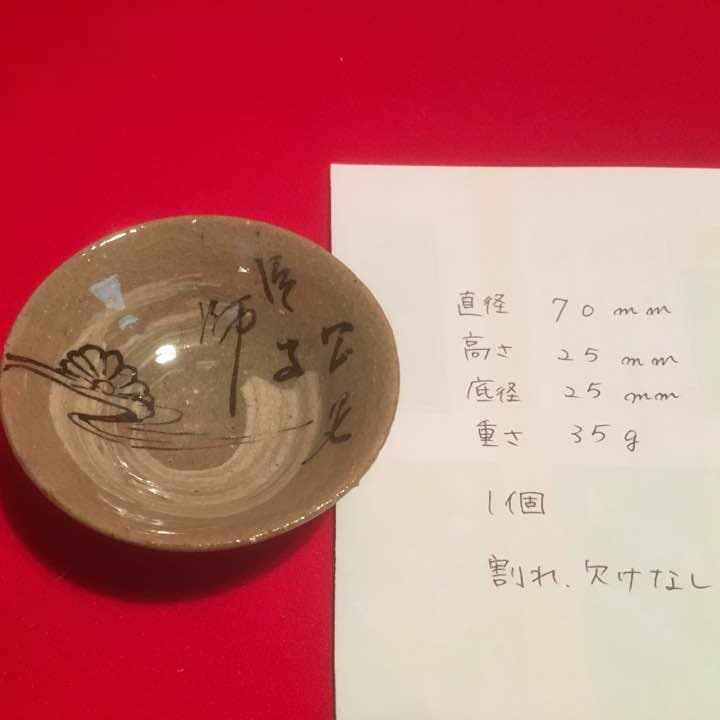 師
直径 70mm
高さ 25mm
底径 25mm
重さ 35g
1個
割れ、欠けなし